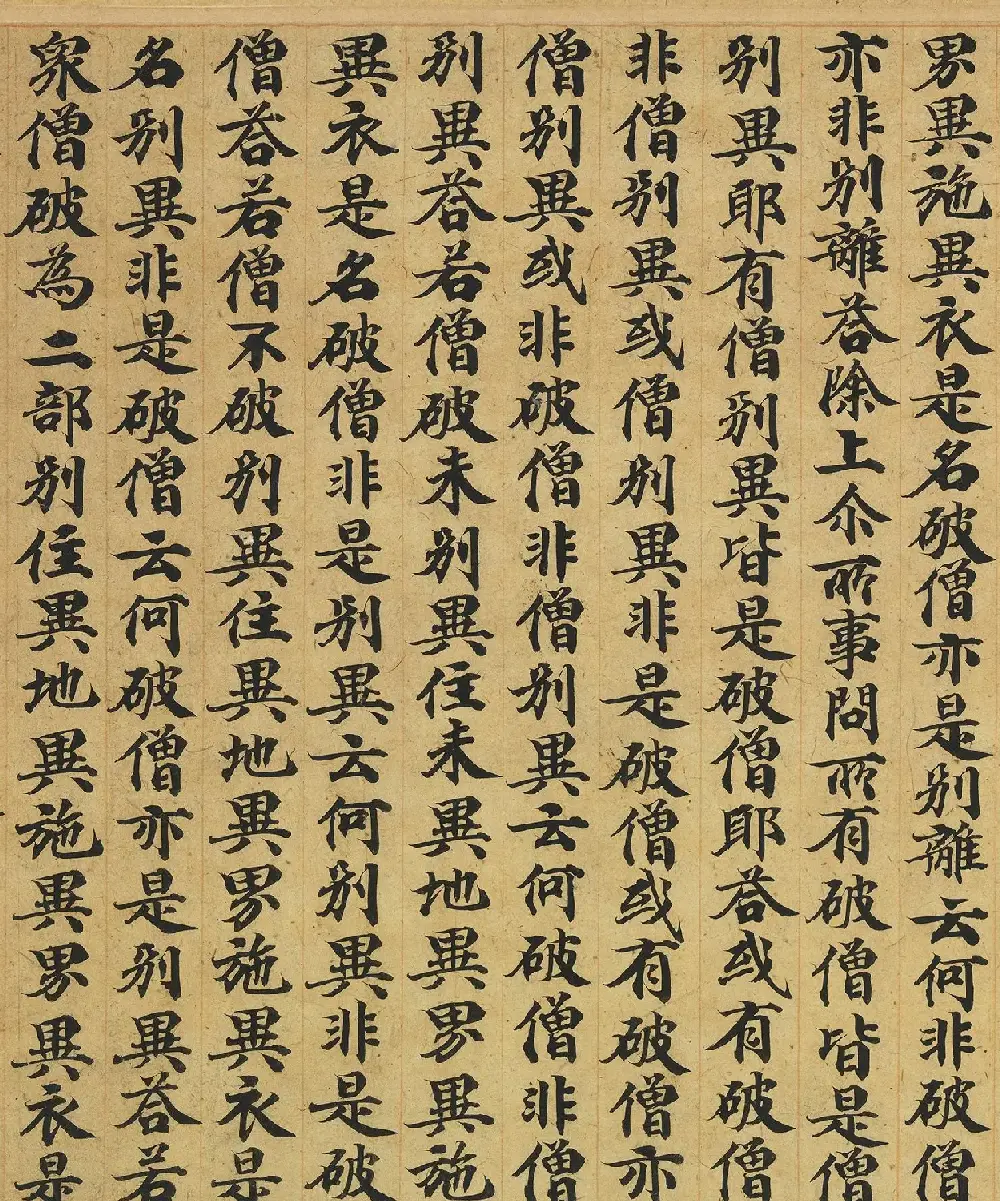 界異施異衣是名破僧亦是别離云何非破僧
亦非别離荅除上尒所事問所有破僧皆是僧
别異耶有僧别異皆是破僧耶荅或有破僧
非僧别異或僧别異非是破僧或有破僧亦
僧别異或非破僧非僧别異云何破僧非僧
别異荅若僧破未别異住未異地異界異施
異衣是名破僧非是别異云何别異非是破
僧荅若僧不破别異住異地異界施異衣是
名别異非是破僧云何破僧亦是别異荅若
衆僧破為二部别住異地異施異界異衣是